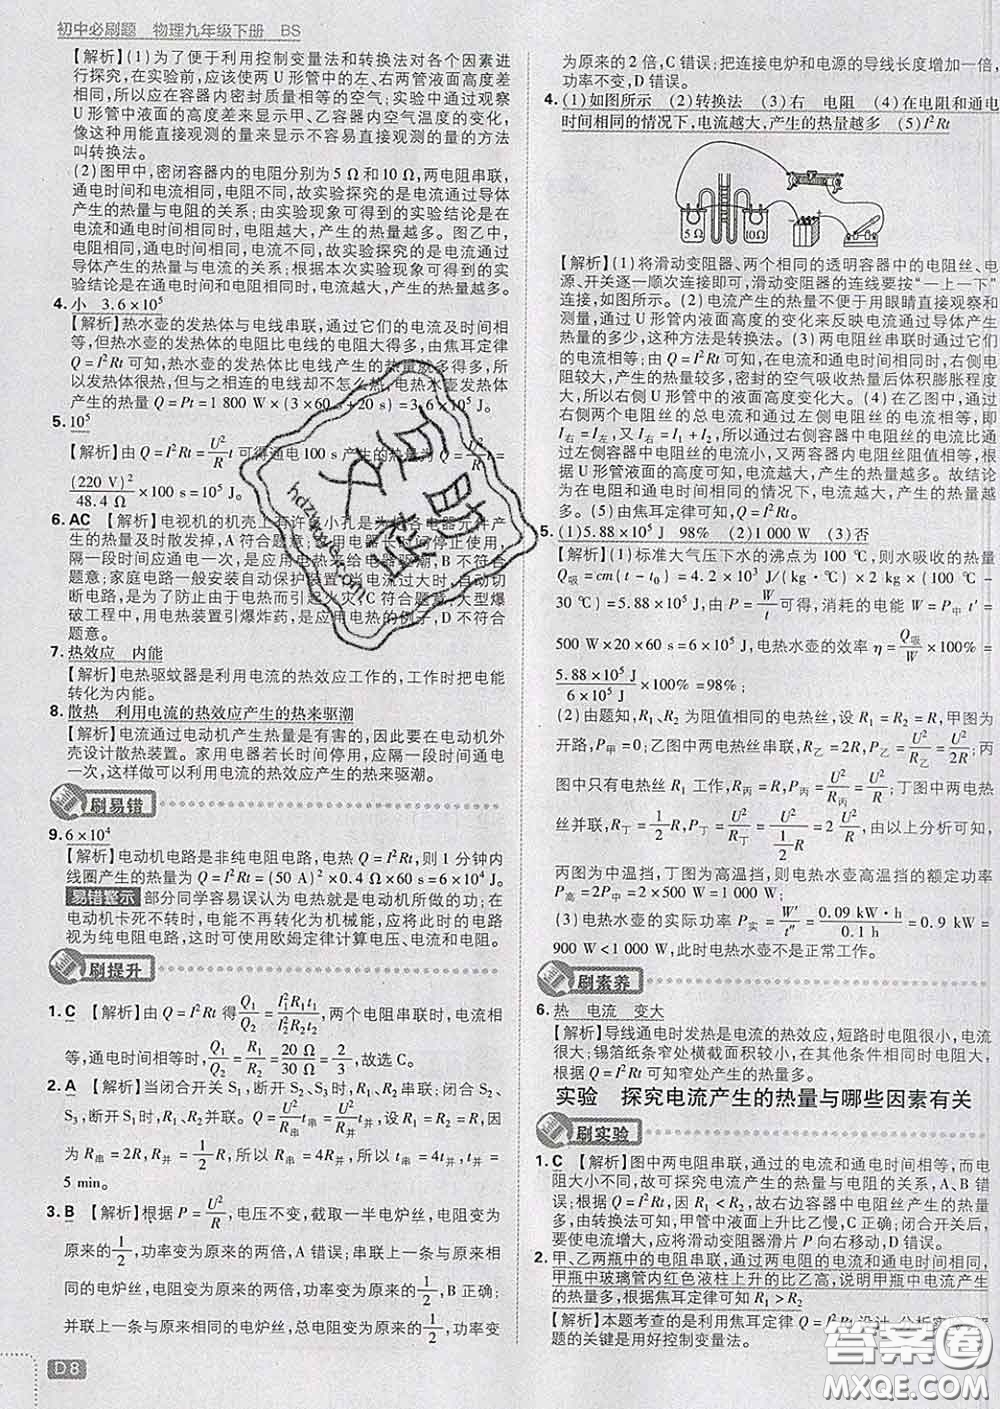 初中必刷题 物理九年级下册 BS
【解析】(1)为了便于利用控制变量法和转换法对各个因素
进行探究,在实验前,应该使两 U 形管中的左、右两管液面高度差
相同,所以应在容器内密封质量相等的空气;实验中通过观察
U 形管中液面的高度差来显示甲、乙容器内空气温度的变化,
像这种用能直接观测的量来显示不容易直接观测的量的方法
叫转换法。
(2)图甲中,密闭容器中的电阻分别为 5 Ω 和 10 Ω,两电阻串联,
通电时间和电流相同,电阻不同,故实验探究的是电流通过导体
产生的热量与电阻的关系;由实验现象可得到的实验结论是在
电流和通电时间相同时,电阻越大,产生的热量越多。图乙中,
电阻相同,通电时间相同,电流不同,故实验探究的是电流通过
导体产生的热量与电流的关系;根据本次实验现象可得到的实
验结论是在通电时间和电阻相同时,电流越大,产生的热量越多。
4. 小 3.6×10⁵
【解析】热水壶的发热体与电线串联,通过它们的电流及时间相
等,但热水壶的发热体的电阻比电线的电阻大得多,由焦耳定律
Q=I²Rt 可知,热水壶的发热体比电线产生的热量多得多,所
以发热体很热,但与之相连的电线却不怎么热,电热水壶发热体
产生的热量 Q=Pt=1 800 W×(3×60 s+20 s)=3.6×10⁵ J。
5. 10⁵
【解析】由 Q=I²Rt=U²/R t 可得通电 100 s 产生的热量为 Q=U²/R t=
(220 V)²/48.4 Ω×100 s=10⁵ J。
6. AC 【解析】电视机的机壳上有许多小孔是为了给各电器元件产
生的热及时散发掉,A 符合题意;家用电器长时间停止使用,
隔一段时间应通电一次,是用电流来给电器驱潮,B 不符合
题意;家庭电路一般安装自动保护装置,当电流过大时,自动切
断电路,是为了防止由于电热而引起火灾,C 符合题意;大型爆
破工程中,用电热装置引爆炸药,是应用电热的例子,D 不符合
题意。
7. 热效应 内能
【解析】电热驱蚊器是利用电流的热效应工作的,工作时把电能
转化为内能。
8. 散热 利用电流的热效应产生的热来驱潮
【解析】电流通过电动机产生热量是有害的,因此要在电动机外
壳设计散热装置。家用电器若长时间停用,应隔一段时间通电
一次,这样做可以利用电流的热效应产生的热来驱潮。
刷易错
9. 6×10⁴
【解析】电动机电路是非纯电阻电路,电热 Q=I²Rt,则 1 分钟内
线圈产生的热量为 Q=I²Rt=(50 A)²×0.4 Ω×60 s=6×10⁴ J。
易错警示 部分同学容易误认为电热就是电动机所做的功;在
电动机卡死不转时,电能不再转化为机械能,应将此时的电路
视为纯电阻电路,这时可以使用欧姆定律计算电压、电流和电阻。
刷提升
1. C 【解析】由 Q=I²Rt 得 Q₁/Q₂=I₁²R₁t₁/I₂²R₂t₂,两个电阻串联时,电流相
等,通电时间相等时,Q₁/Q₂=R₁/R₂=20 Ω/30 Ω=2/3,故选 C。
2. A 【解析】当闭合开关 S₁,断开 S₂ 时,R₁、R₂ 串联;闭合 S₁、
S₂,断开 S₃ 时,R₁、R₂ 并联。Q=U²/R串 t串=U²/R并 t并,设 R₁=R₂=
R,则 R串=2R,R并=1/2R,所以 R串=4R并,所以 t串=4t并,t并=
5 min。
3. B 【解析】根据 P=U²/R,电压不变,截取一半电炉丝,电阻变为
原来的1/2,功率变为原来的两倍,A 错误;串联上一条与原来同
样的电炉丝,电阻变为原来的两倍,功率变为原来的1/2,B 正确;
并联上一条与原来同样的电炉丝,总电阻变为原来的1/2,功率变
D8
为原来的 2 倍,C 错误;把连接电炉和电源的导线长度增加一倍,
功率不变,D 错误。
4. (1)如图所示 (2)转换法 (3)右 电阻 (4)在电阻和通电
时间相同的情况下,电流越大,产生的热量越多 (5)I²Rt
5 Ω 10Ω
【解析】(1)将滑动变阻器、两个相同的透明容器中的电阻丝、电
源、开关逐一顺次连接即可,滑动变阻器的连线要按“一上一下”
连接,如图所示。(2)电流产生的热量不便于用眼睛直接观察和
测量,通过 U 形管内液面高度的变化来反映电流通过导体产生
热量的多少,这种方法是转换法。(3)两电阻丝串联时通过它们
的电流相等;由图可知,在电流和通电时间相同时,右侧电
阻较大,产生的热量较多,密封的空气吸收热量后体积膨胀程度
大,所以右侧 U 形管中液面高度变化大。(4)在乙图中,流过
右侧两个电阻丝的总电流和通过左侧电阻丝的电流相等,即
I右=I左,又因为 I右=I₁+I₂,所以右侧容器中电阻丝的电流比通过
左侧容器中电阻丝的电流小,又两容器内电阻丝阻值相等,根
据 U 形管液面的高度可知,电流越大,产生热量越多。故结论
为在电阻和通电时间相同的情况下,电流越大,产生的热量越
多。(5)由焦耳定律可知,Q=I²Rt。
5. (1)5.88×10⁵ J 98% (2)1 000 W (3)否
【解析】(1)标准大气压下水的沸点为 100 ℃,则水吸收的热量
Q吸=cm(t-t₀)=4.2×10³ J/(kg·℃)×2 kg×(100 ℃-
30 ℃)=5.88×10⁵ J,由 P=W/t 可得,消耗的电能 W=P中 t′=
500 W×20×60 s=6×10⁵ J;电热水壶的效率 η=Q吸/W×100%=
5.88×10⁵ J/6×10⁵ J×100%=98%;
(2)由题知,R₁、R₂ 为阻值相同的电热丝,设 R₁=R₂=R,甲图为
开路,P甲=0;乙图中两电热丝串联,R乙=2R,P乙=U²/R乙=U²/2R;丙
图中只有电热丝 R₁ 工作,R丙=R,P丙=U²/R丙=U²/R;丁图中两电热
丝并联,R丁=1/2R,P丁=U²/R丁=U²/(1/2 R)=2 U²/R,由以上分析可知,
丙图为中温挡,丁图为高温挡,则电热水壶高温挡的额定功率
P高=2P中=2×500 W=1 000 W;
(3)电热水壶的实际功率 P实=W′/t″=0.09 kW·h/0.1 h=0.9 kW=
900 W<1 000 W,此时电热水壶不是正常工作。
刷素养
6. 热 电流 变大
【解析】导线通电时发热是电流的热效应,短路时电阻很小,电流
很大;锡箔纸条窄处横截面积较小,在其他条件相同时电阻大,
根据 Q=I²Rt 可知窄处产生的热量多。
实验 探究电流产生的热量与哪些因素有关
刷实验
1. C 【解析】图中两电阻串联,通过的电流和通电时间相等,而电
阻大小不同,故可探究电流产生的热量与电阻的关系,A、B 错
误;根据 Q=I²Rt,因 R₁<R₂,故右边容器中电阻丝产生的热量
多,由转换法可知,甲管中液面上升比乙慢,C 正确;闭合开关后
要使电流增大,应将滑动变阻器滑片 P 向右移动,D 错误。
2. 甲、乙两瓶中的电阻串联,通过两电阻的电流和通电时间相同,
甲瓶中玻璃管内红色液柱上升的比乙高,说明甲瓶中电流产生
的热量多,根据焦耳定律可知 R₁>R₂
【解析】本题考查的是利用焦耳定律 Q=I²Rt 设计、分析实验,解
题的关键是用好控制变量法。
作业互助
hdzuoye.com
答案圈
MXQE.COM